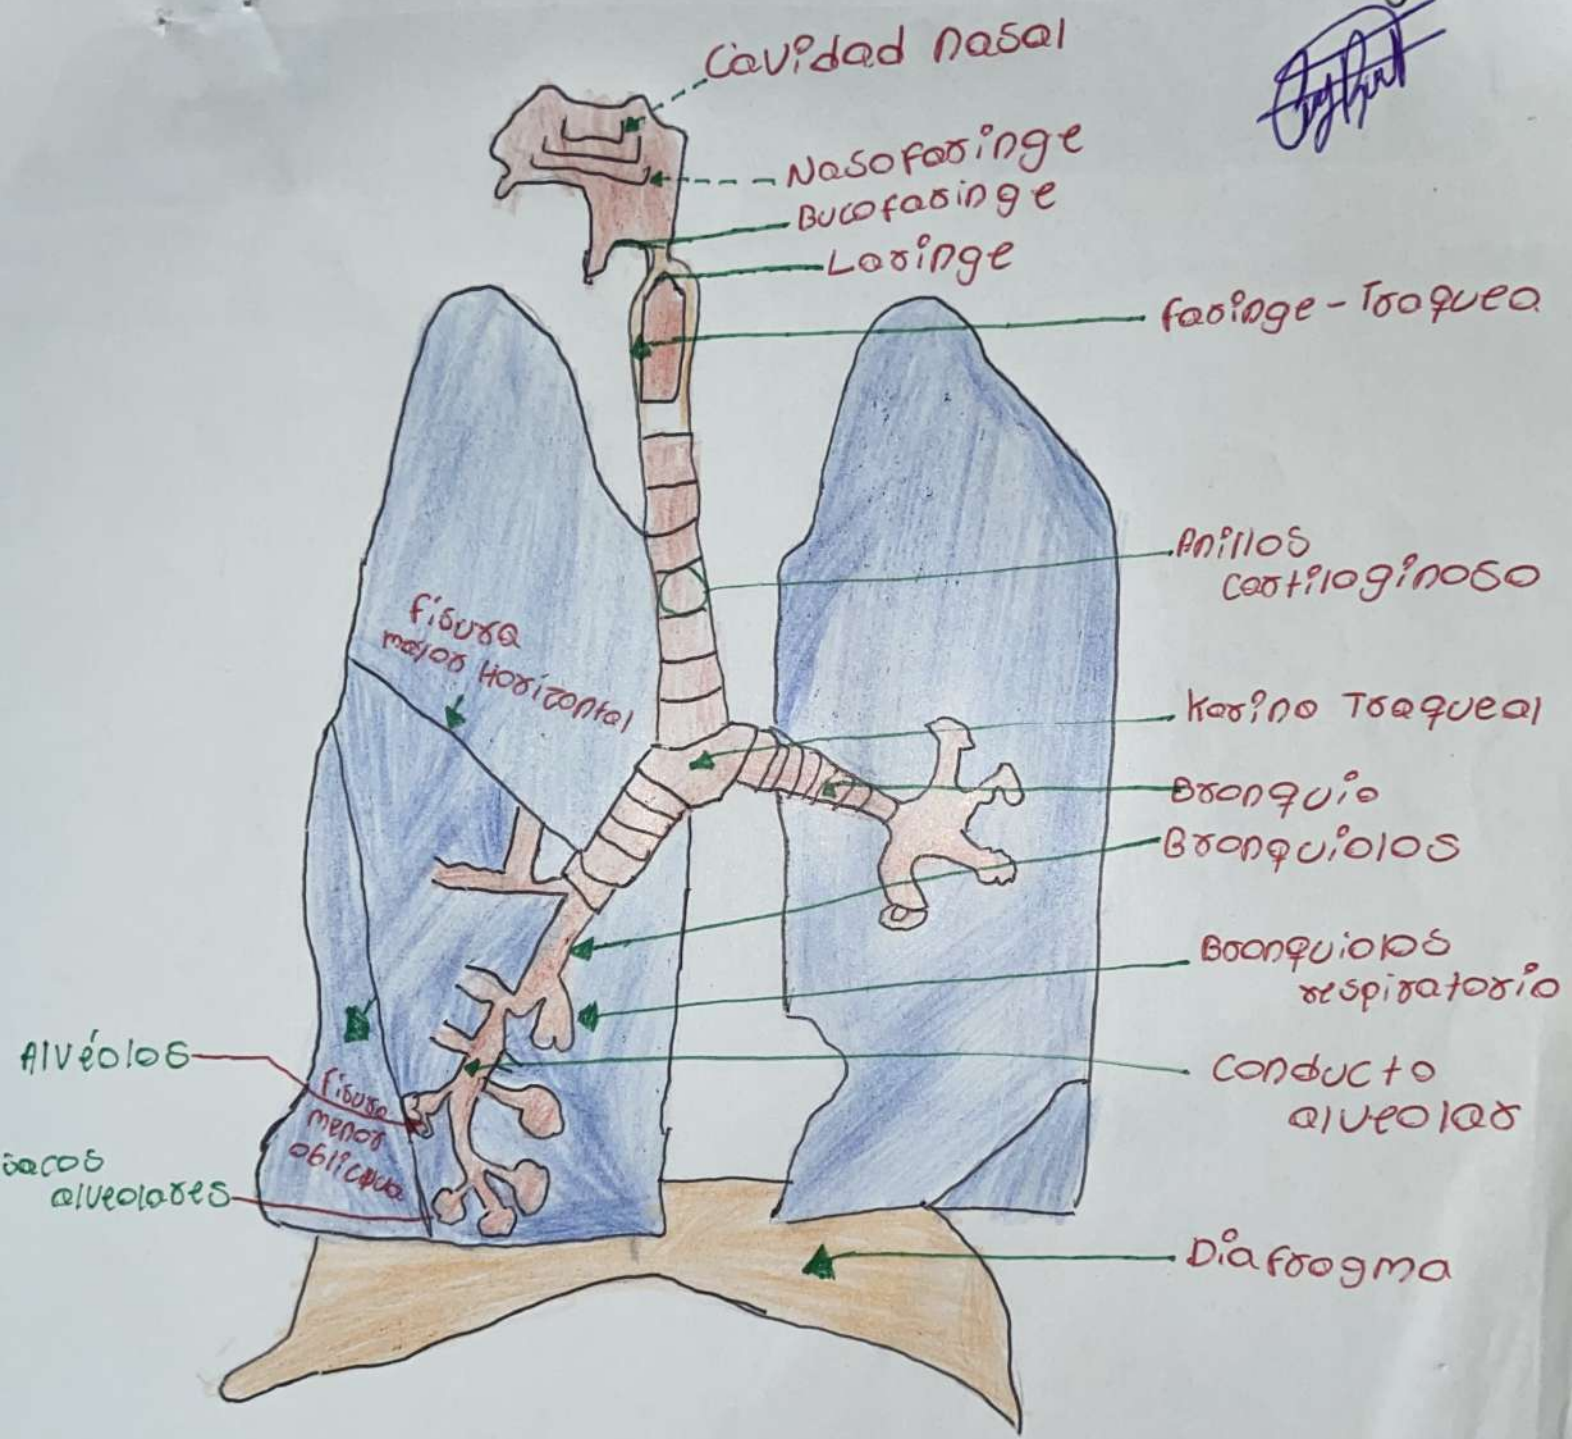 Cavidad nasal
Nasofaringe
Bucofaringe
Laringe
faringe - Traquea
Anillos
Cartilaginoso
fisura
major Horizontal
Karina Traqueal
Bronquio
Bronquiolos
Bronquiolos
respiratorio
Alvéolos
conducto
alveolar
fisura
menor
oblicqua
sacos
alveolares
Diafragma